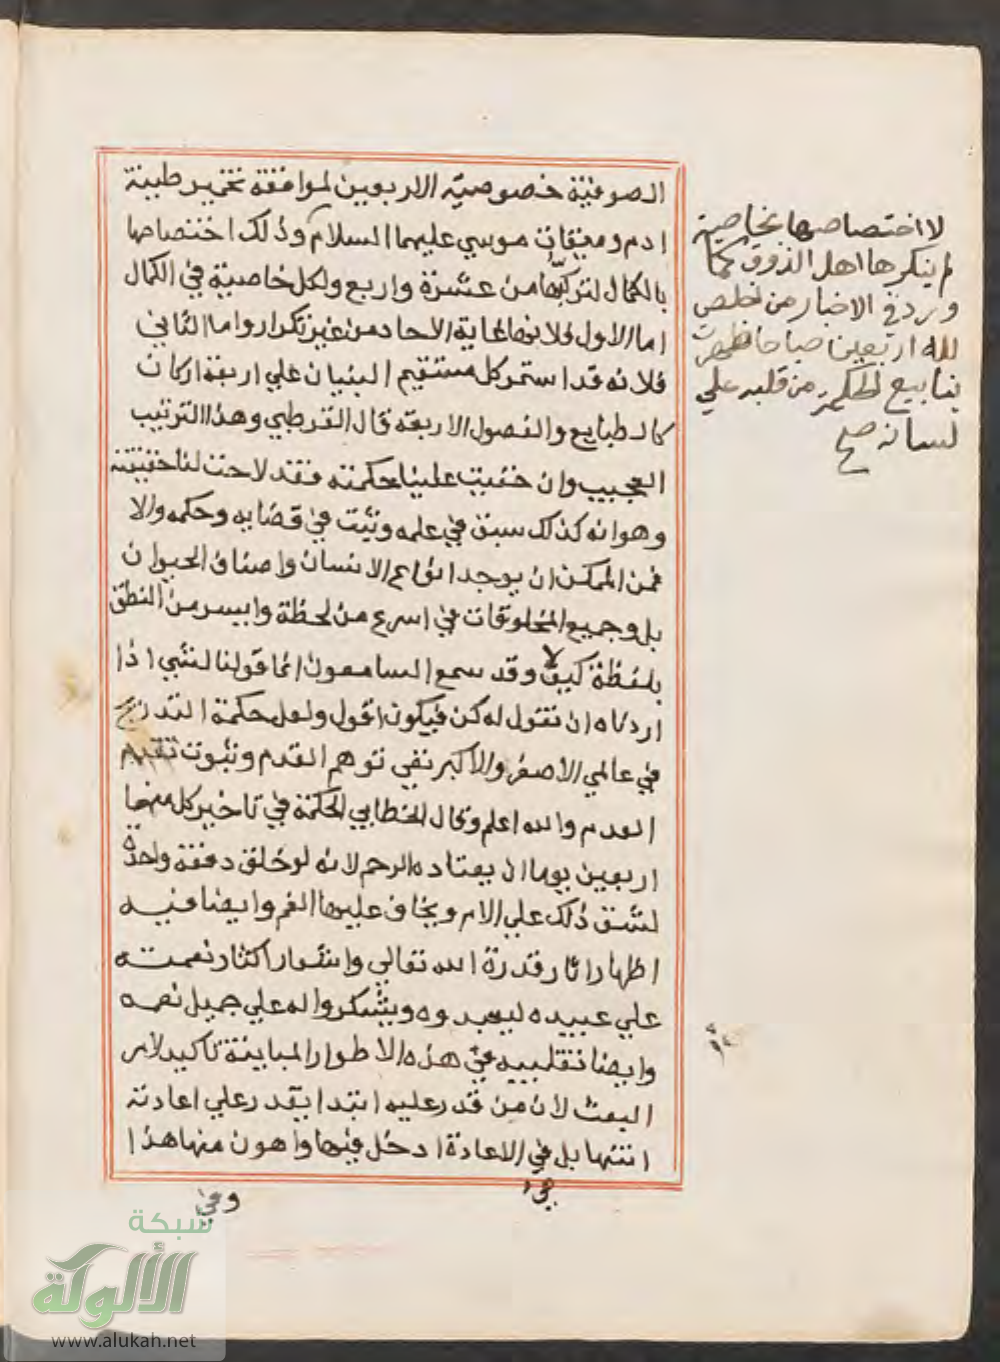 الصوفية خصوصية الاربعين لموافقة تخمير طينة
ادم وميقات موسي عليهما السلام وذلك اختصاصها
بالكمال لتركبها من عشرة واربع ولكل خاصية في الكمال
اما الاول فلانها غاية الاحاد من غير تكرار واما الثاني
فلانه قد استمر كل مستقيم البنيان علي اربعة اركان
كالطبايع والفصول الاربعة قال القرطبي وهذا الترتيب
العجيب وان خفيت علينا حكمته فقد لاحت لنا حقيقته
وهو انه كذلك سبق في علمه وثبت في قضايه وحكمه والا
فمن الممكن ان يوجد انواع الانسان واصناف الحيوان
بل وجميع المخلوقات في اسرع من لحظة وايسر من النطق
بلفظة كيف لا وقد سمع السامعون انما قولنا لشي اذا
اردناه ان نقول له كن فيكون اقول ولعل حكمة التدريج
في عالمي الاصغر والاكبر نفي توهم القدم وثبوت تقدم
العدم والله اعلم وقال الخطابي الحكمة في تاخير كل منها
اربعين يوما ان يعتاده الرحم لانه لو خلق دفعة واحدة
لشق ذلك علي الام ويخاف عليها الغم وايضا فيه
اظهار اثار قدرة الله تعالي واشعار اكثار نعمته
علي عبيده ليعبدوه ويشكروا له علي جميل نعمه
وايضا تقلبيه في هذه الاطوار المباينة تاكيد لامر
البعث لان من قدر عليه ابتدا يقدر علي اعادته
انتها بل في الاعادة ادخل فيها واهون منها هذا
وفي
لا اختصاصها بخاصية
لم ينكرها اهل الذوق كما
ورد في الاخبار من اخلص
لله اربعين صباحا ظهرت
ينابيع الحكمة من قلبه علي
لسانه صح
شبكة
الألوكة
www.alukah.net